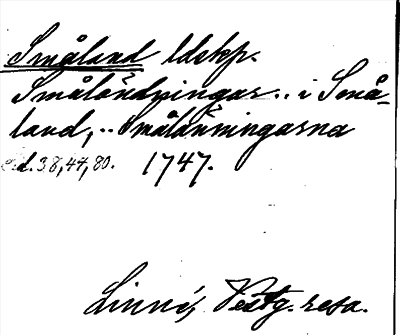 Småland ldskp.
Småländningar.. i Små-
land,.. Smålänningarna
d. 38, 44, 80. 1747.
Linné, Västg. resa.